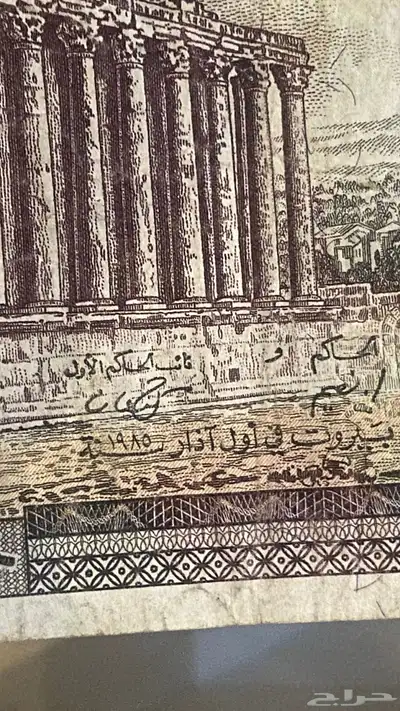 الحاكم و نائب الحاكم الأول
بيروت في أول آذار سنة ١٩٨٥
حراج